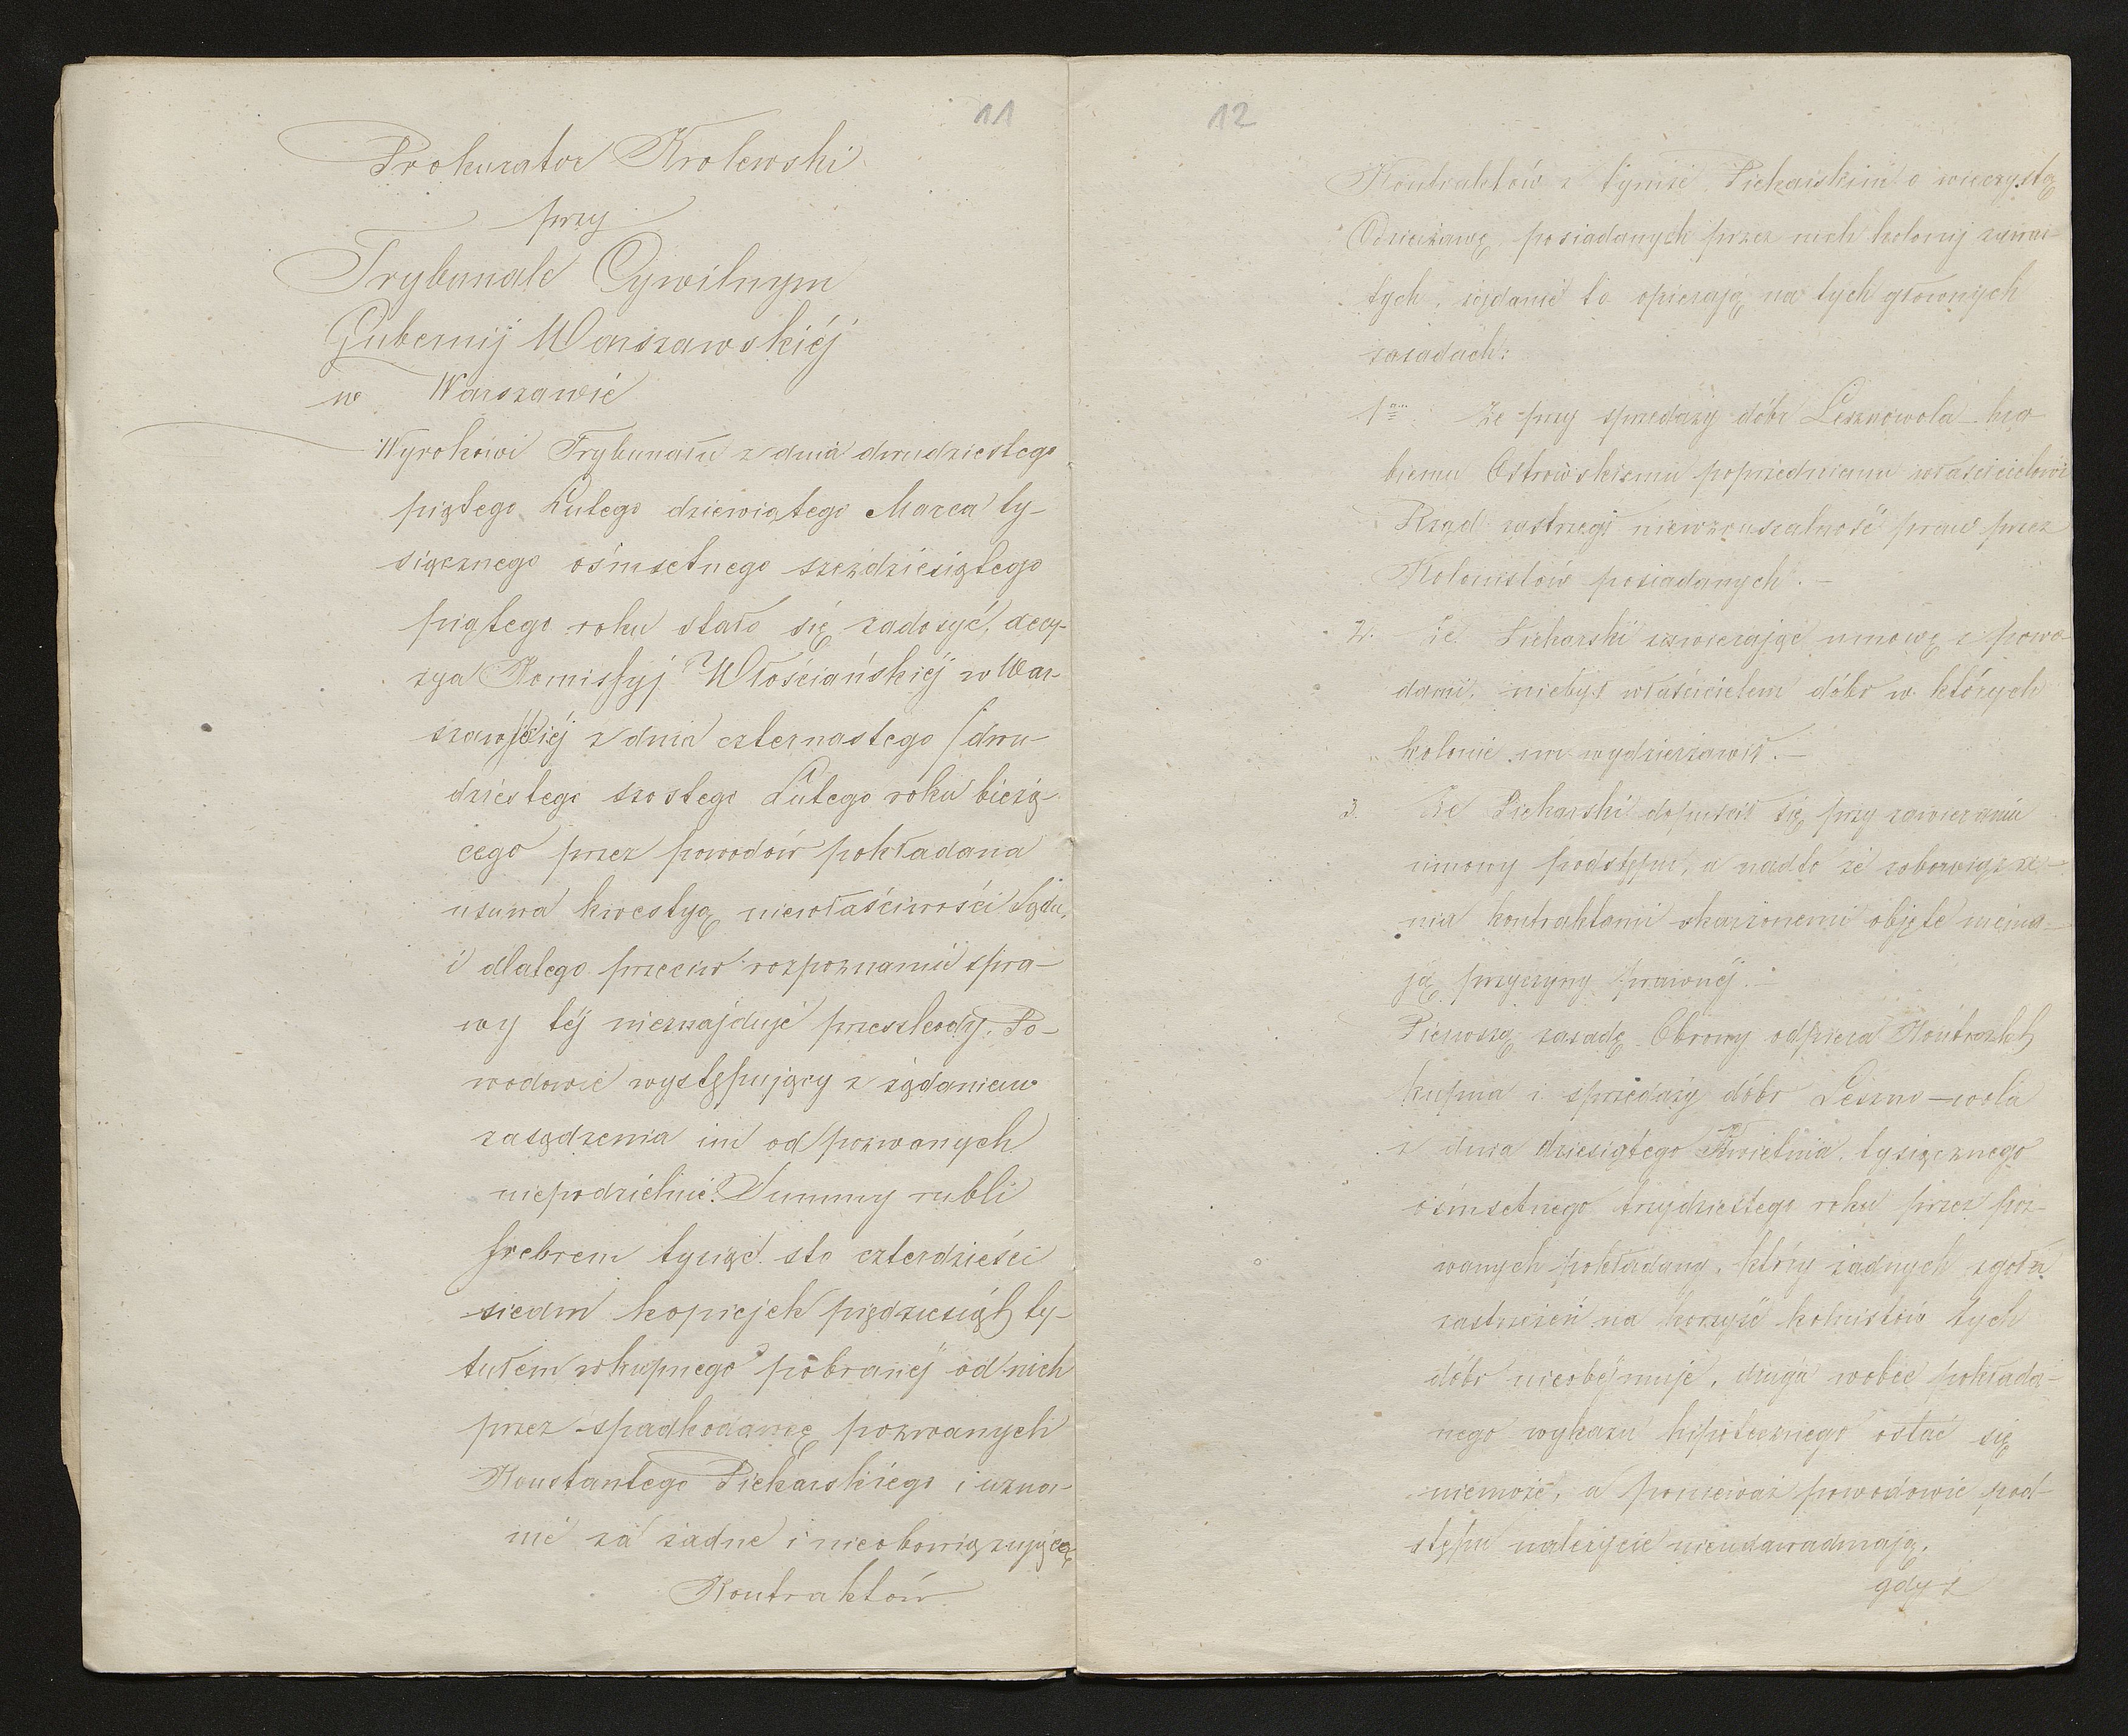 11
Prokurator Krolewski
przy
Trybunale Cywilnym
Gubernij Warszawskiéj
w Warszawie
Wyrokowi Trybunału z dnia dwudziestego
piątego Lutego dziewiątego Marca ty-
siącznego ośmsetnego sześdziesiątego
piątego roku stało się zadosyć, decy-
zya Komissyj Włościańskiéj w War-
szawskiéj z dnia czternastego /dwu-
dziestego szostego Lutego roku bieżą-
cego przez powodów pokładana
usuwa kwestyą niewłaściwości Sądu,
i dlatego przeciw rozpoznaniu spra-
wy téj nieznajduje przeszkody. Po-
wodowie występujący z żądaniem
zasądzenia im od pozwanych
niepodzielnie Summy rubli
srebrem tysiąc sto czterdzieści
siedm kopiejek piędziesiąt ty-
tułem wkupnego pobranéj od nich
przez spadkodawcę pozwanych
Konstantego Piekarskiego i uzna-
nie za żadne i nieobowiązującę
Kontraktów
12
Kontraktów z tymże Piekarskim o wieczystą
Dzierżawę posiadanych przez nich kolonij zawar-
tych, żądanie to opierają na tych głównych
zasadach:
1. że przy sprzedaży dóbr Lesznowola hra-
biemu Ostrowskiemu poprzedniemu właścicielowi
Rząd zastrzegł niewzruszalność praw przez
Kolonistów posiadanych. —
2. że Piekarski zawierając umowę z powo
dami, niebył właścicielem dóbr w których
kolonie im wydzierżawił. —
3. że Piekarski dopuścił się przy zawieraniu
umowy podstępu, a nadto że zobowiąza-
nia kontraktami skarżonemi objęte niema-
ją przyczyny prawnéj. —
Pierwszą zasadę Obrony odpiera Kontrakt
kupna i sprzedaży dóbr Leszno-wola
z dnia dziesiątego Kwietnia tysiącznego
ośmsetnego trzydziestego roku przez poz-
wanych pokładany, który żadnych zgoła
zastrzeżeń na korzyść kolnistów tych
dóbr nieobéjmuje, druga wobec pokłada-
nego wykazu hipotecznego ostać się
niemoże, a ponieważ powodowie pod-
stępu należycie nieudawadniają,
gdyż